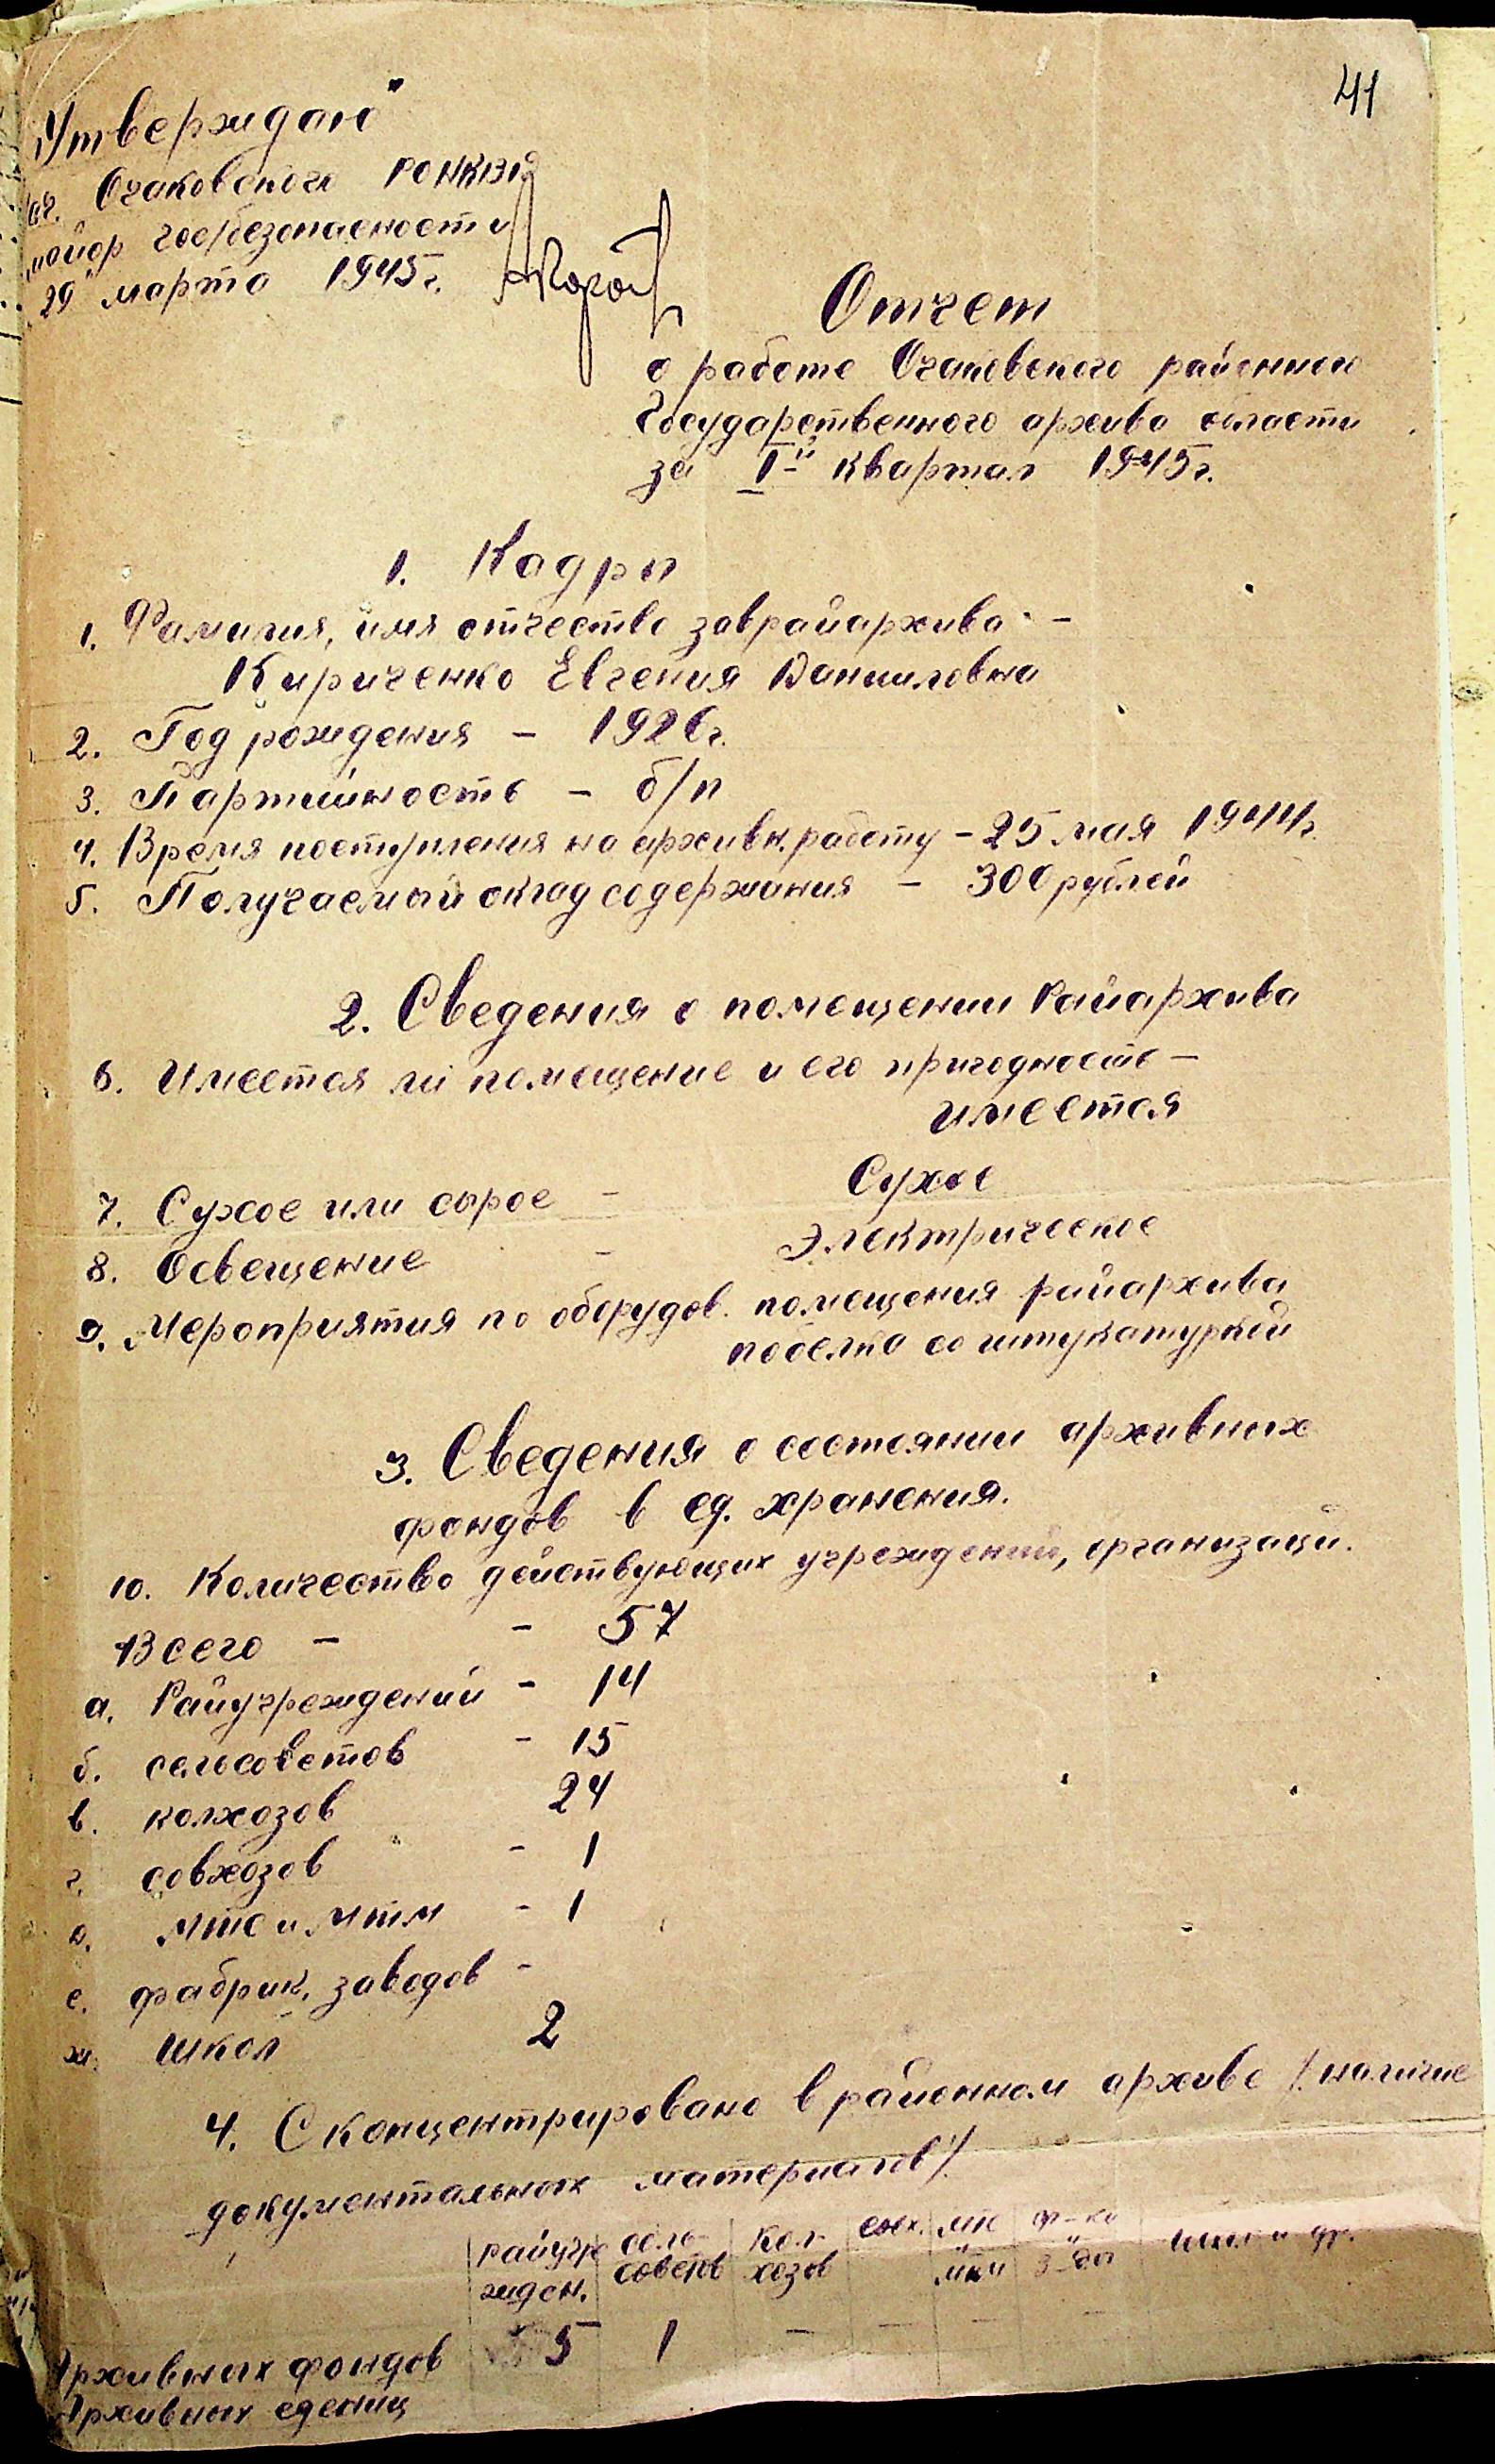 41
„Утверждаю"
Нач. Очаковского РОНКВД
майор госбезопасности
„29" марта 1945г.
Отчет
о работе Очаковского районного
Государственного архива области
за I-й квартал 1945г.
1. Кадры
1. Фамилия, имя отчество заврайархива -
Кириченко Евгения Данииловна
2. Год рождения - 1926г.
3. Партийность - б/п
4. Время поступления на архивн. работу - 25 мая 1944г.
5. Получаемый оклад содержания - 300 рублей
2. Сведения о помещении Райархива
6. Имеется ли помещение и его пригодность -
имеется
7. Сухое или сырое - Сухое
8. Освещение - Электрическое
9. Мероприятия по оборудов. помещения райархива
побелка со штукатуркой
3. Сведения о состоянии архивных
фондов в ед. хранения.
10. Количество действующих учреждений, организаци.
Всего - - 57
а. Райучреждений - 14
б. сельсоветов - 15
в. колхозов 24
г. совхозов - 1
д. мтс и мтм - 1
е. фабрик, заводов -
ж. школ 2
4. Сконцентрировано в районном архиве /наличие
документальных материалов/.
райучре сель- кол- совх. мтс ф-ка
жден. советов хозов мтм з-да школ и др.
Архивных фондов 5 1 - - - -
Архивных едениц